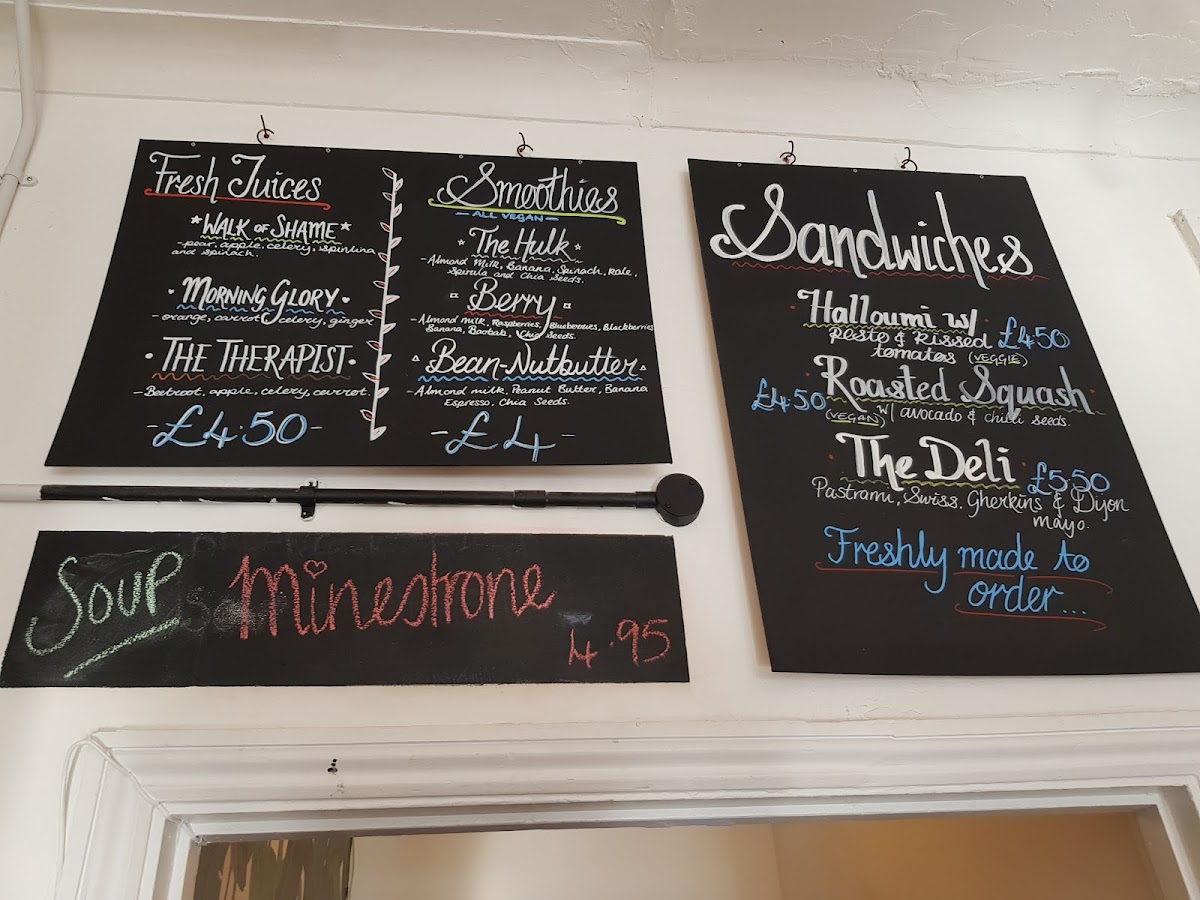 Fresh Juices
*WALK OF SHAME*
-pear, apple, celery, spirulina
and spinach.
MORNING GLORY
- orange, carrot celery, ginger
THE THERAPIST
- Beetroot, apple, celery, carrot.
-£4.50-
Smoothies
-ALL VEGAN-
The Hulk
-Almond Milk, Banana, Spinach, Kale,
Spirula and Chia Seeds.
Berry
-Almond milk, Raspberries, Blueberries, Blackberries
Banana, Baobab, Chia Seeds.
Bean-Nutbutter
-Almond milk, Peanut Butter, Banana
Espresso, Chia Seeds.
-£4-
Soup Minestrone
4.95
Sandwiches
Halloumi w/
Pesto & Kissed £4.50
tomatoes (VEGGIE)
Roasted Squash
£4.50 (VEGAN) w/ avocado & chilli seeds.
The Deli £5.50
Pastrami, Swiss, Gherkins & Dijon
mayo.
Freshly made to
order...